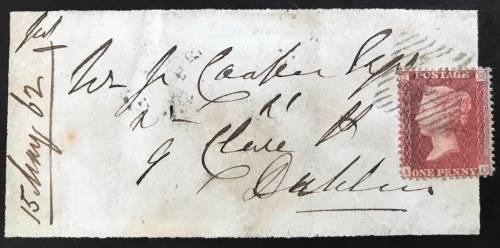 15 May 62
Wm J. Cooker Esqr
9 Clare St
Dublin
POSTAGE
ONE PENNY